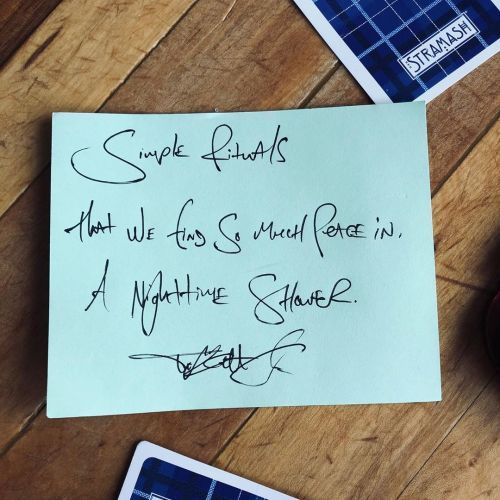 STRAMASH
Simple Rituals
that we find so much Peace in.
A Nighttime Shower.